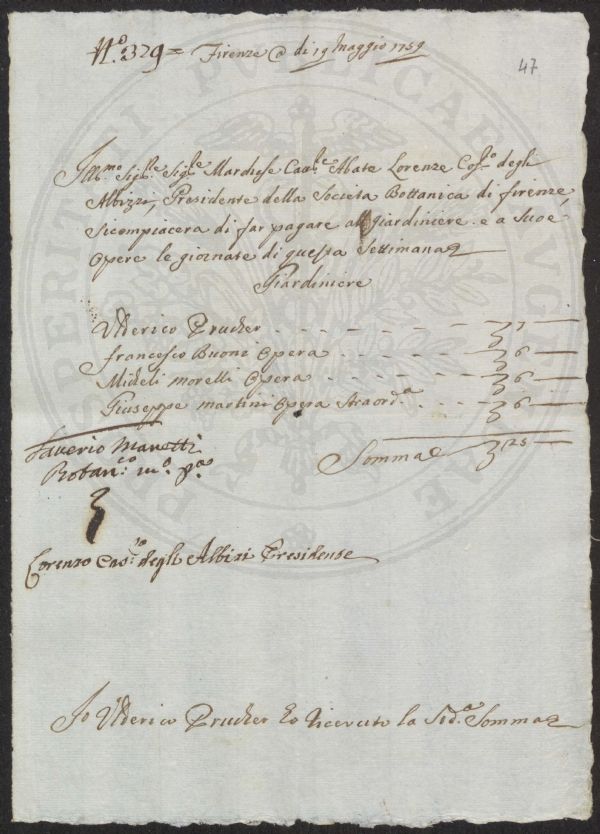 N.º 329 = Firenze @ di 19 Maggio 1759
47
Ill.mo Sig.re Sig.re Mardiese Cav.re Abate Lorenzo Cos.o degli
Albizzi, Presidente della Societa Bottanica di firenze,
Sicompiacera di far pagare al giardiniere e a Suoe
Opere le giornate di questa Settimana
Giardiniere
Ulderico Prucher 7
francesco Buoni Opera 6
Micheli morelli Opera 6
Giuseppe martini Opera Straord.a 6
Somma 25
Saverio Manetti
Botan.co m.o p.a
Lorenzo Cas.to degli Albizi Presidente
Io Ulderico Prucher ho riceruto la Sid.a Somma
PROSPERITATI PUBLICAE AUGENDAE